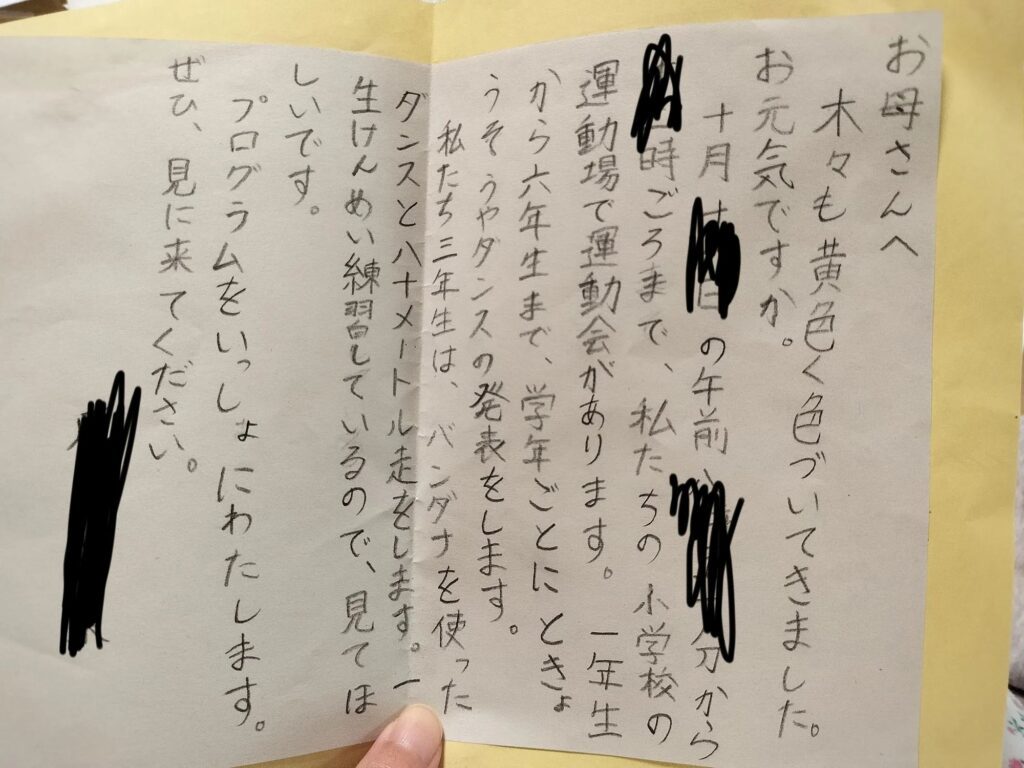 お母さんへ
木々も黄色く色づいてきました。
お元気ですか。
十月 の午前 分から
時ごろまで、私たちの小学校の
運動場で運動会があります。一年生
から六年生まで、学年ごとにときょ
うそうやダンスの発表をします。
私たち三年生は、バンダナを使った
ダンスと八十メートル走をします。一
生けんめい練習しているので、見てほ
しいです。
プログラムをいっしょにわたします。
ぜひ、見に来てください。